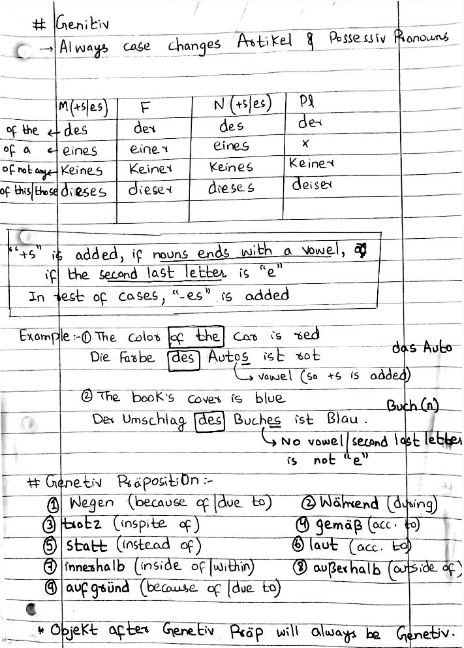 # Genitiv
→ Always case changes Artikel & Possessiv Pronouns
M(+s/es) F N (+s/es) Pl
of the ← des der des der
of a ← eines einer eines x
of not any ← Keines Keiner Keines Keiner
of this/those dieses dieser dieses deiser
"+s" is added, if nouns ends with a vowel,
if the second last letter is "e"
In rest of cases, "-es" is added
Example :- ① The color of the car is red
das Auto
Die Farbe des Autos ist rot
↳ vowel (so +s is added)
② The book's cover is blue
Buch (n)
Der Umschlag des Buches ist Blau.
↳ No vowel/second last letter
is not "e"
# Genetiv Präposition :-
① Wegen (because of/due to) ② Während (during)
③ trotz (inspite of) ④ gemäß (acc. to)
⑤ statt (instead of) ⑥ laut (acc. to)
⑦ innerhalb (inside of/within) ⑧ außerhalb (outside of)
⑨ aufgründ (because of/due to)
* Objekt after Genetiv Präp will always be Genetiv.